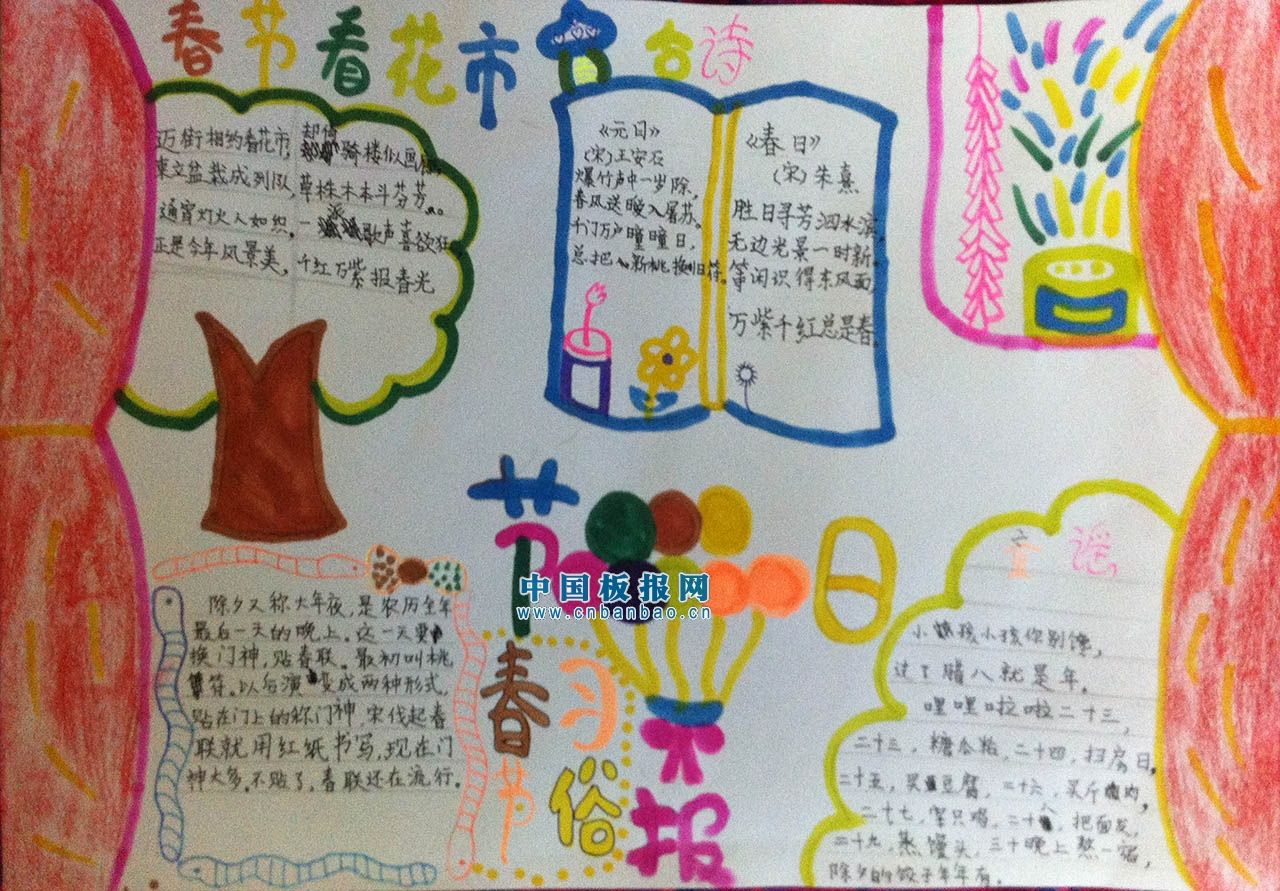 春节看花市
古诗
迈街相约看花市，却倚骑楼似画廊。
束立盆栽成列队，草株木本斗芬芳。
通宵灯火人如织，一派歌声喜欲狂
正是今年风景美，千红万紫报春光
《元日》
(宋)王安石
爆竹声中一岁除，
春风送暖入屠苏。
千门万户曈曈日，
总把新桃换旧符。
《春日》
(宋)朱熹
胜日寻芳泗水滨，
无边光景一时新。
等闲识得东风面，
万紫千红总是春。
节日
小报
中国板报网
www.cnbanbao.cn
春节
习俗
除夕又称大年夜，是农历全年
最后一天的晚上。这一天要
换门神，贴春联。最初叫桃
符。以后演变成两种形式，
贴在门上的称门神，宋代起春
联就用红纸书写，现在门
神大多不贴了，春联还在流行。
童谣
小孩小孩你别馋，
过了腊八就是年，
哩哩啦啦二十三，
二十三，糖瓜粘，二十四，扫房日，
二十五，买豆腐，二十六，买斤肉，
二十七，宰只鸡，二十八，把面发，
二十九，蒸馒头，三十晚上熬一宿，
除夕的饺子年年有。